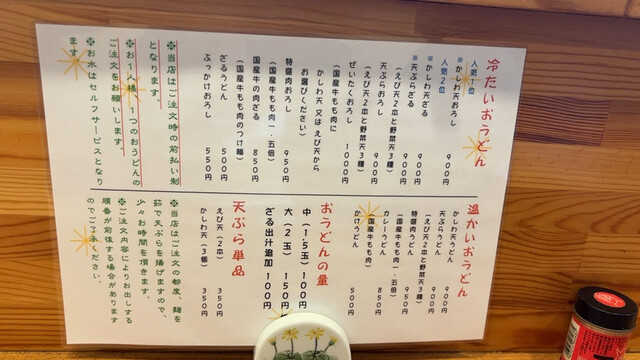 冷たいおうどん
人気1位
※かしわ天おろし 900円
人気2位
※かしわ天ざる 900円
※天ぷらざる 900円
(えび天2本と野菜天3種)
天ぷらおろし 900円
(えび天2本と野菜天3種)
ぜいたくおろし 1000円
(国産牛もも肉に
かしわ天又はえび天から
お選びください)
特盛肉おろし 950円
(国産牛もも肉一.五倍)
国産牛の肉ざる 850円
(国産牛もも肉のつけ麺)
ざるうどん 500円
ぶっかけおろし 550円
※当店はご注文時の前払い制
となります。
※お1人様、1つのおうどんの
ご注文をお願いします。
※お水はセルフサービスとなり
ます。
温かいおうどん
かしわ天うどん 900円
天ぷらうどん 900円
(えび天2本と野菜天3種)
特盛肉うどん 950円
(国産牛もも肉一.五倍)
カレーうどん 850円
(国産牛もも肉)
かけうどん 500円
おうどんの量
中(1.5玉) 100円
大(2玉) 150円
ざる出汁追加 100円
天ぷら単品
えび天(2本) 350円
かしわ天(3個) 350円
※当店はご注文の都度、麺を
茹で天ぷらを揚げますので、
少々お時間を頂きます。
※ご注文内容によりお出しする
順番が前後する場合があります
のでご了承ください。